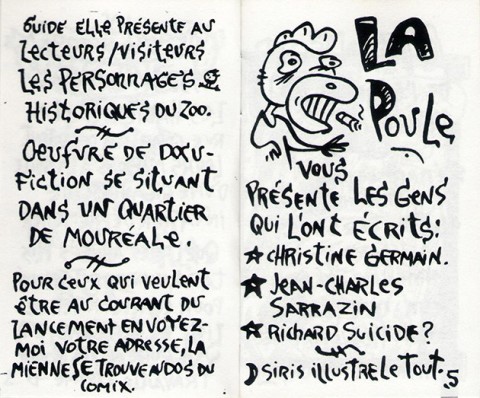 GUIDE ELLE PRÉSENTE AU
LECTEURS/VISITEURS
LES PERSONNAGES
HISTORIQUES DU ZOO.
OEUFVRE DE DOCU-
FICTION SE SITUANT
DANS UN QUARTIER
DE MOURÉALE.
POUR CEUX QUI VEULENT
ÊTRE AU COURANT DU
LANCEMENT ENVOYEZ-
MOI VOTRE ADRESSE, LA
MIENNE SE TROUVE AU DOS DU
COMIX.
LA
POULE
VOUS
PRÉSENTE LES GENS
QUI L'ONT ÉCRITS:
★ CHRISTINE GERMAIN.
★ JEAN-CHARLES
SARRAZIN
★ RICHARD SUICIDE?
SIRIS ILLUSTRE LE TOUT.
5